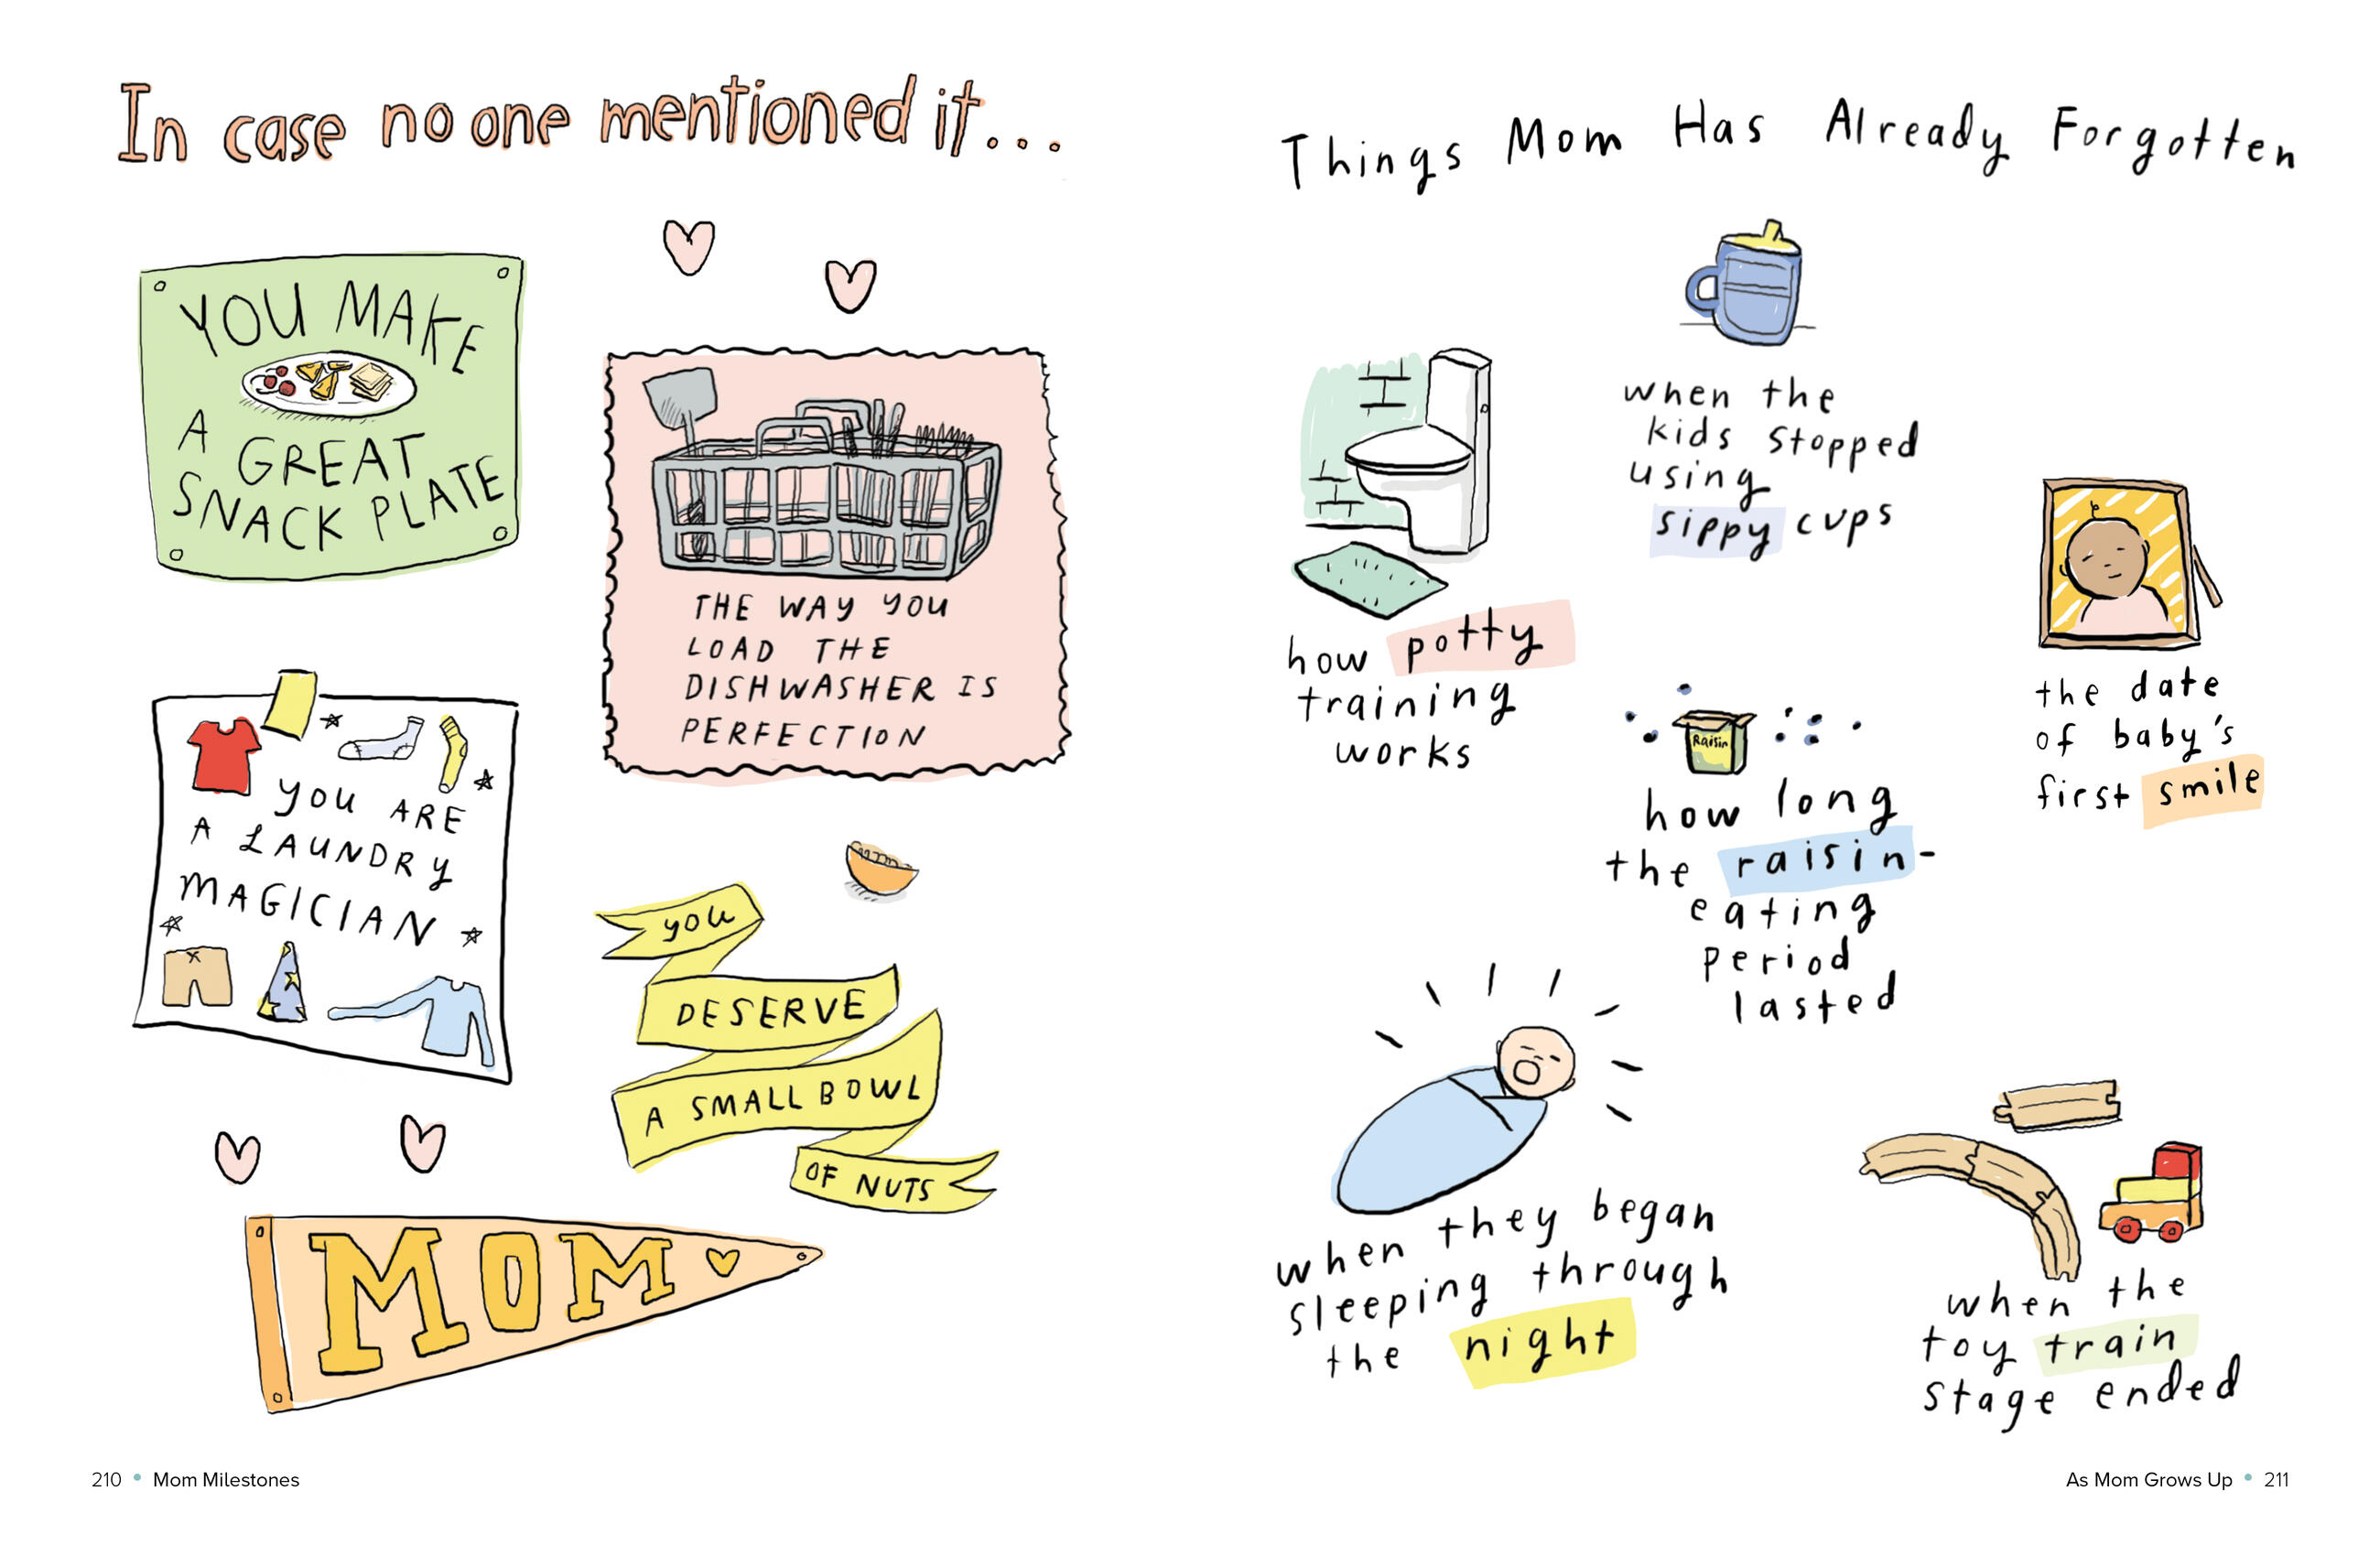 In case no one mentioned it...
YOU MAKE
A GREAT
SNACK PLATE
THE WAY YOU
LOAD THE
DISHWASHER IS
PERFECTION
YOU ARE
A LAUNDRY
MAGICIAN
YOU
DESERVE
A SMALL BOWL
OF NUTS
MOM
210 • Mom Milestones
Things Mom Has Already Forgotten
when the
kids stopped
using
sippy cups
how potty
training
works
the date
of baby's
first smile
Raisin
how long
the raisin-
eating
period
lasted
when they began
sleeping through
the night
when the
toy train
stage ended
As Mom Grows Up • 211